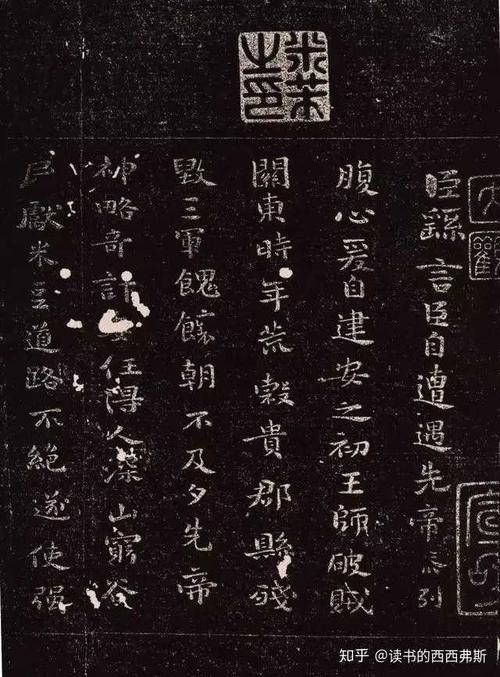 米芾之印
大觀
臣繇言臣自遭遇先帝忝列
腹心爰自建安之初王師破賊
關東時年荒穀貴郡縣殘
毀三軍餽饟朝不及夕先帝
神略奇計委任得人深山窮谷
民獻米豆道路不絕遂使强
知乎 @读书的西西弗斯